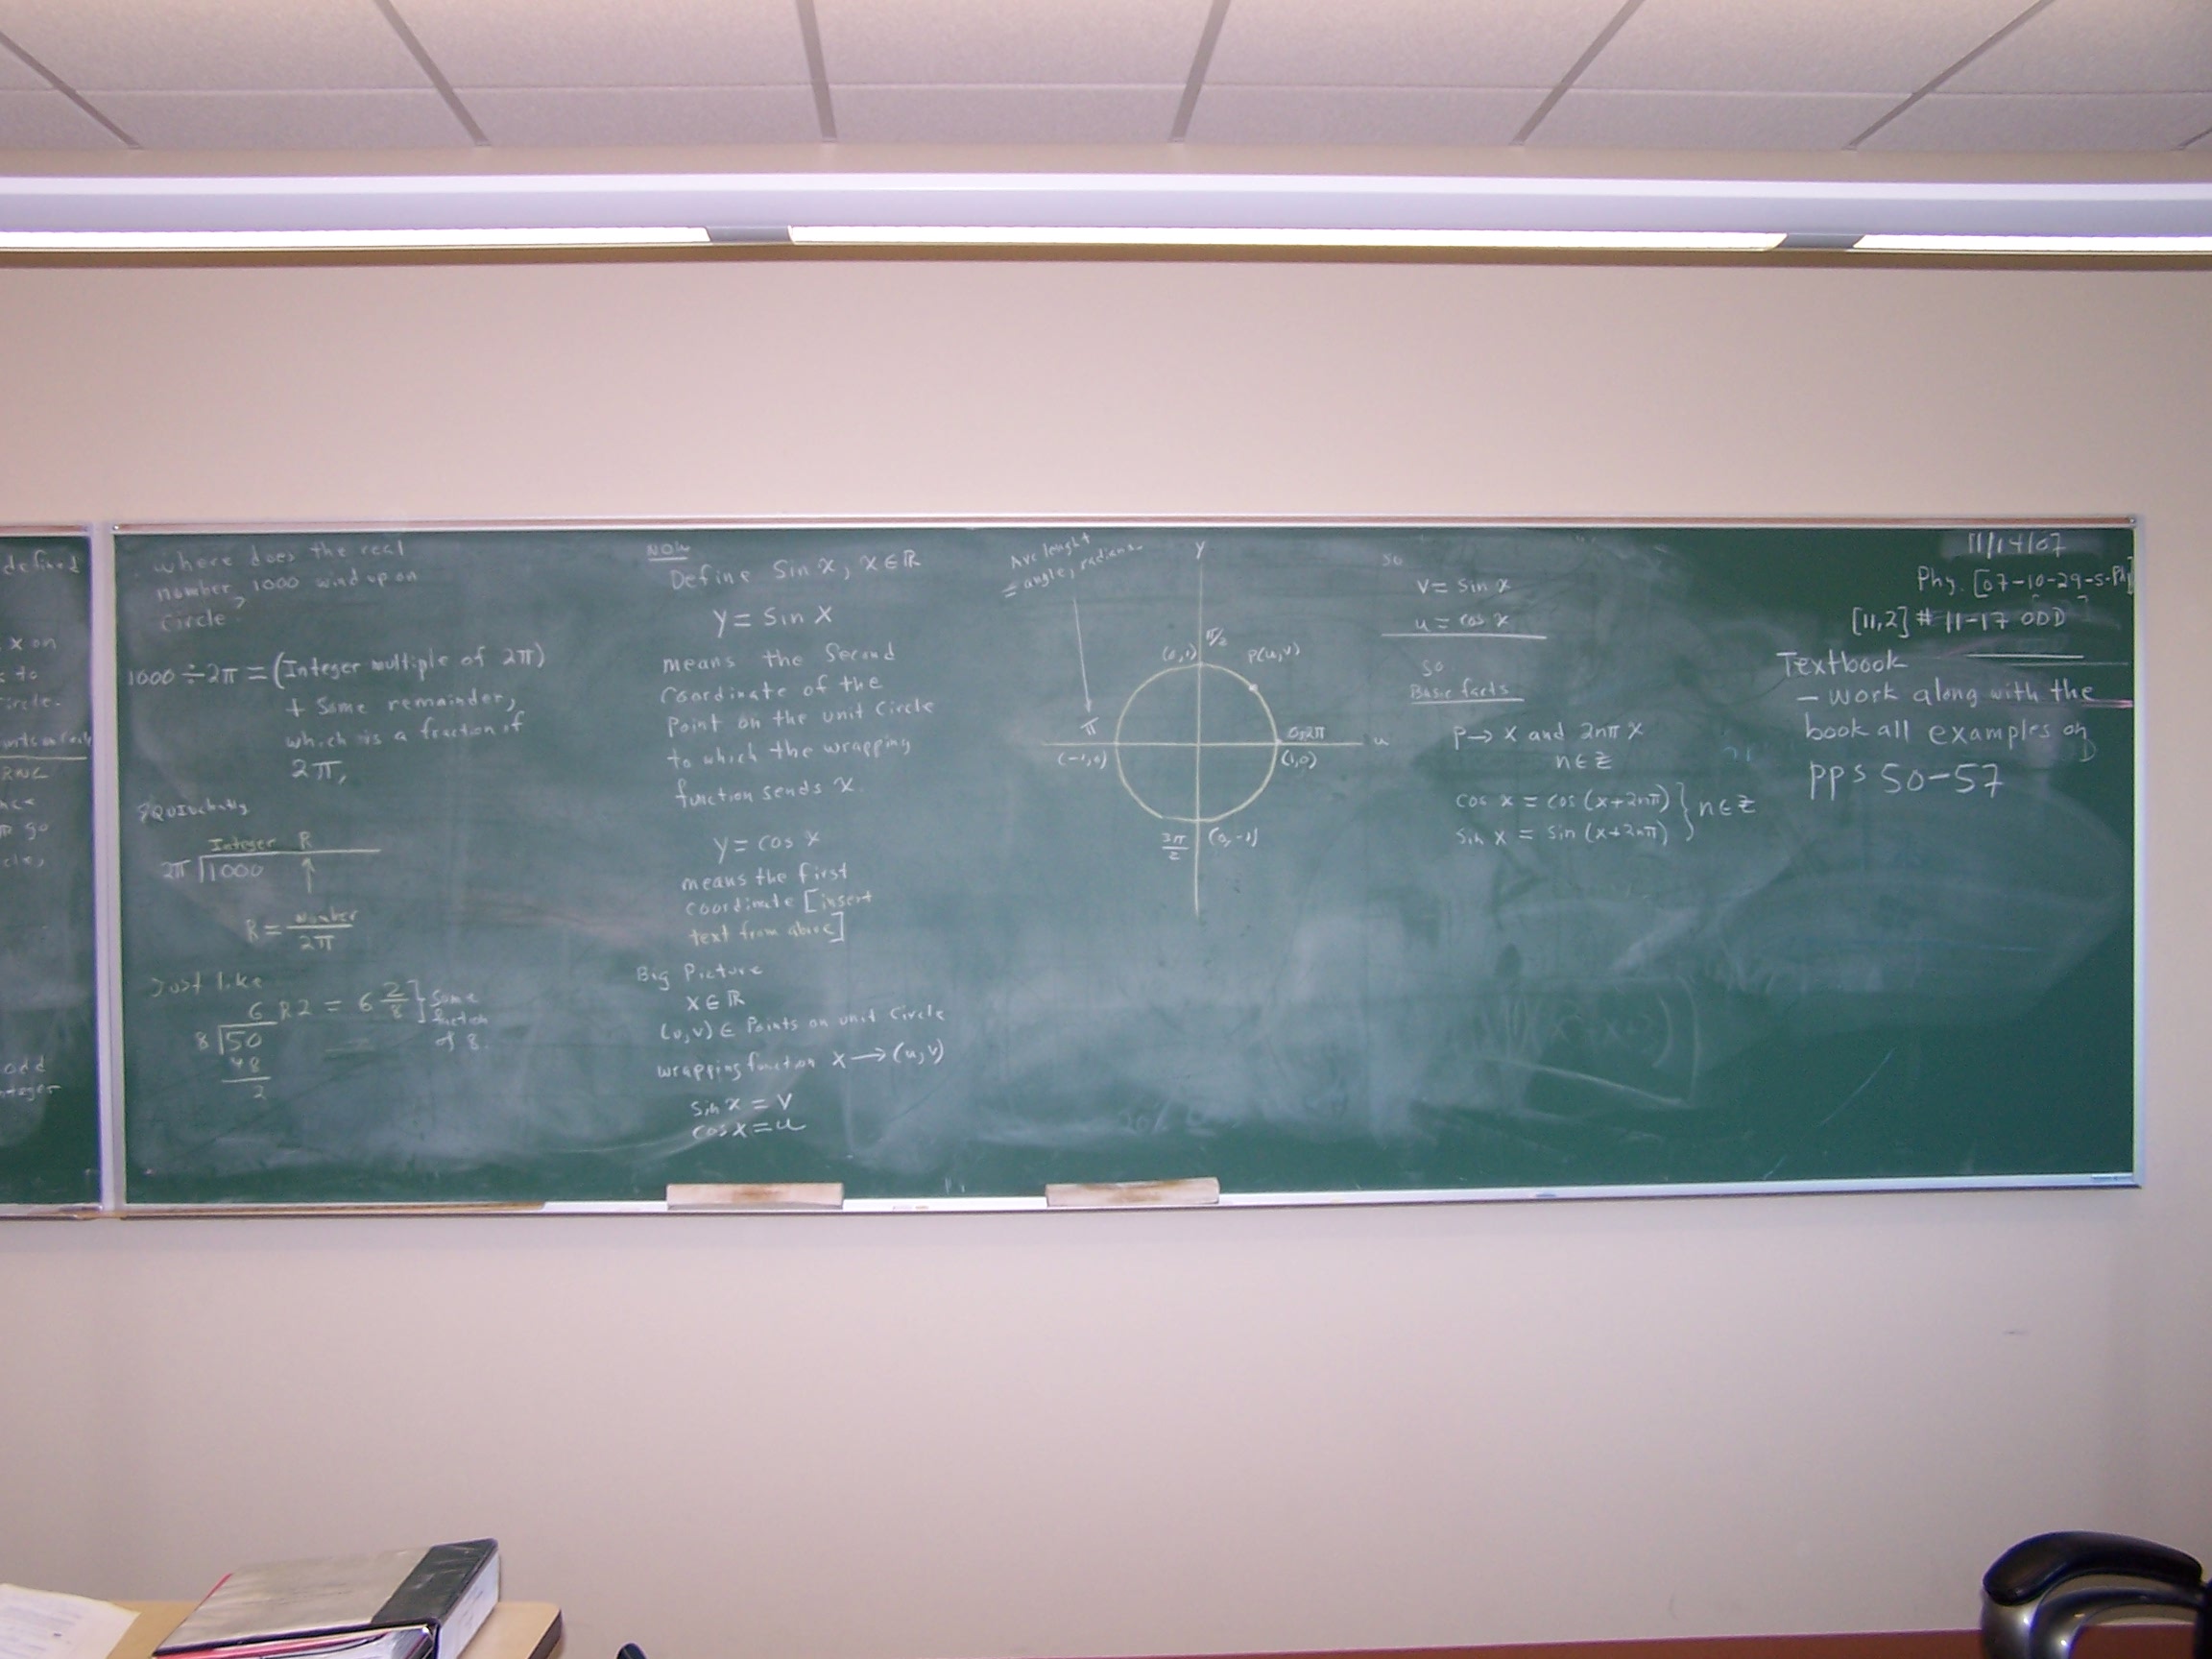 defined
x on
to
circle.
RNC
R go
cle,
odd
nteger
where does the real
number 1000 wind up on
circle?
1000 ÷ 2π = (Integer multiple of 2π)
+ some remainder,
which is a fraction of
2π,
Integer R
2π 1000
R = Number / 2π
Just like
6 R2 = 6 2/8 ] some
fraction
of 8.
8 50
48
2
NOW
Define Sin x, x ∈ ℝ
y = Sin x
means the Second
Coordinate of the
Point on the unit Circle
to which the wrapping
function sends x.
y = cos x
means the first
coordinate [insert
text from above]
Big Picture
x ∈ ℝ
(u,v) ∈ Points on unit Circle
wrapping function x → (u,v)
sin x = v
cos x = u
Arc lenght
= angle, radians
y
π/2
(0,1)
P(u,v)
π
0,2π
u
(-1,0)
(1,0)
3π/2
(0,-1)
so
v = sin x
u = cos x
so
Basic facts
P → x and 2nπ x
n ∈ Z
cos x = cos (x+2nπ) } n ∈ Z
sin x = sin (x+2nπ)
11/14/07
Phy. [07-10-29-S-Ph]
[11,2] # 11-17 ODD
Textbook
- work along with the
book all examples on
pps 50-57